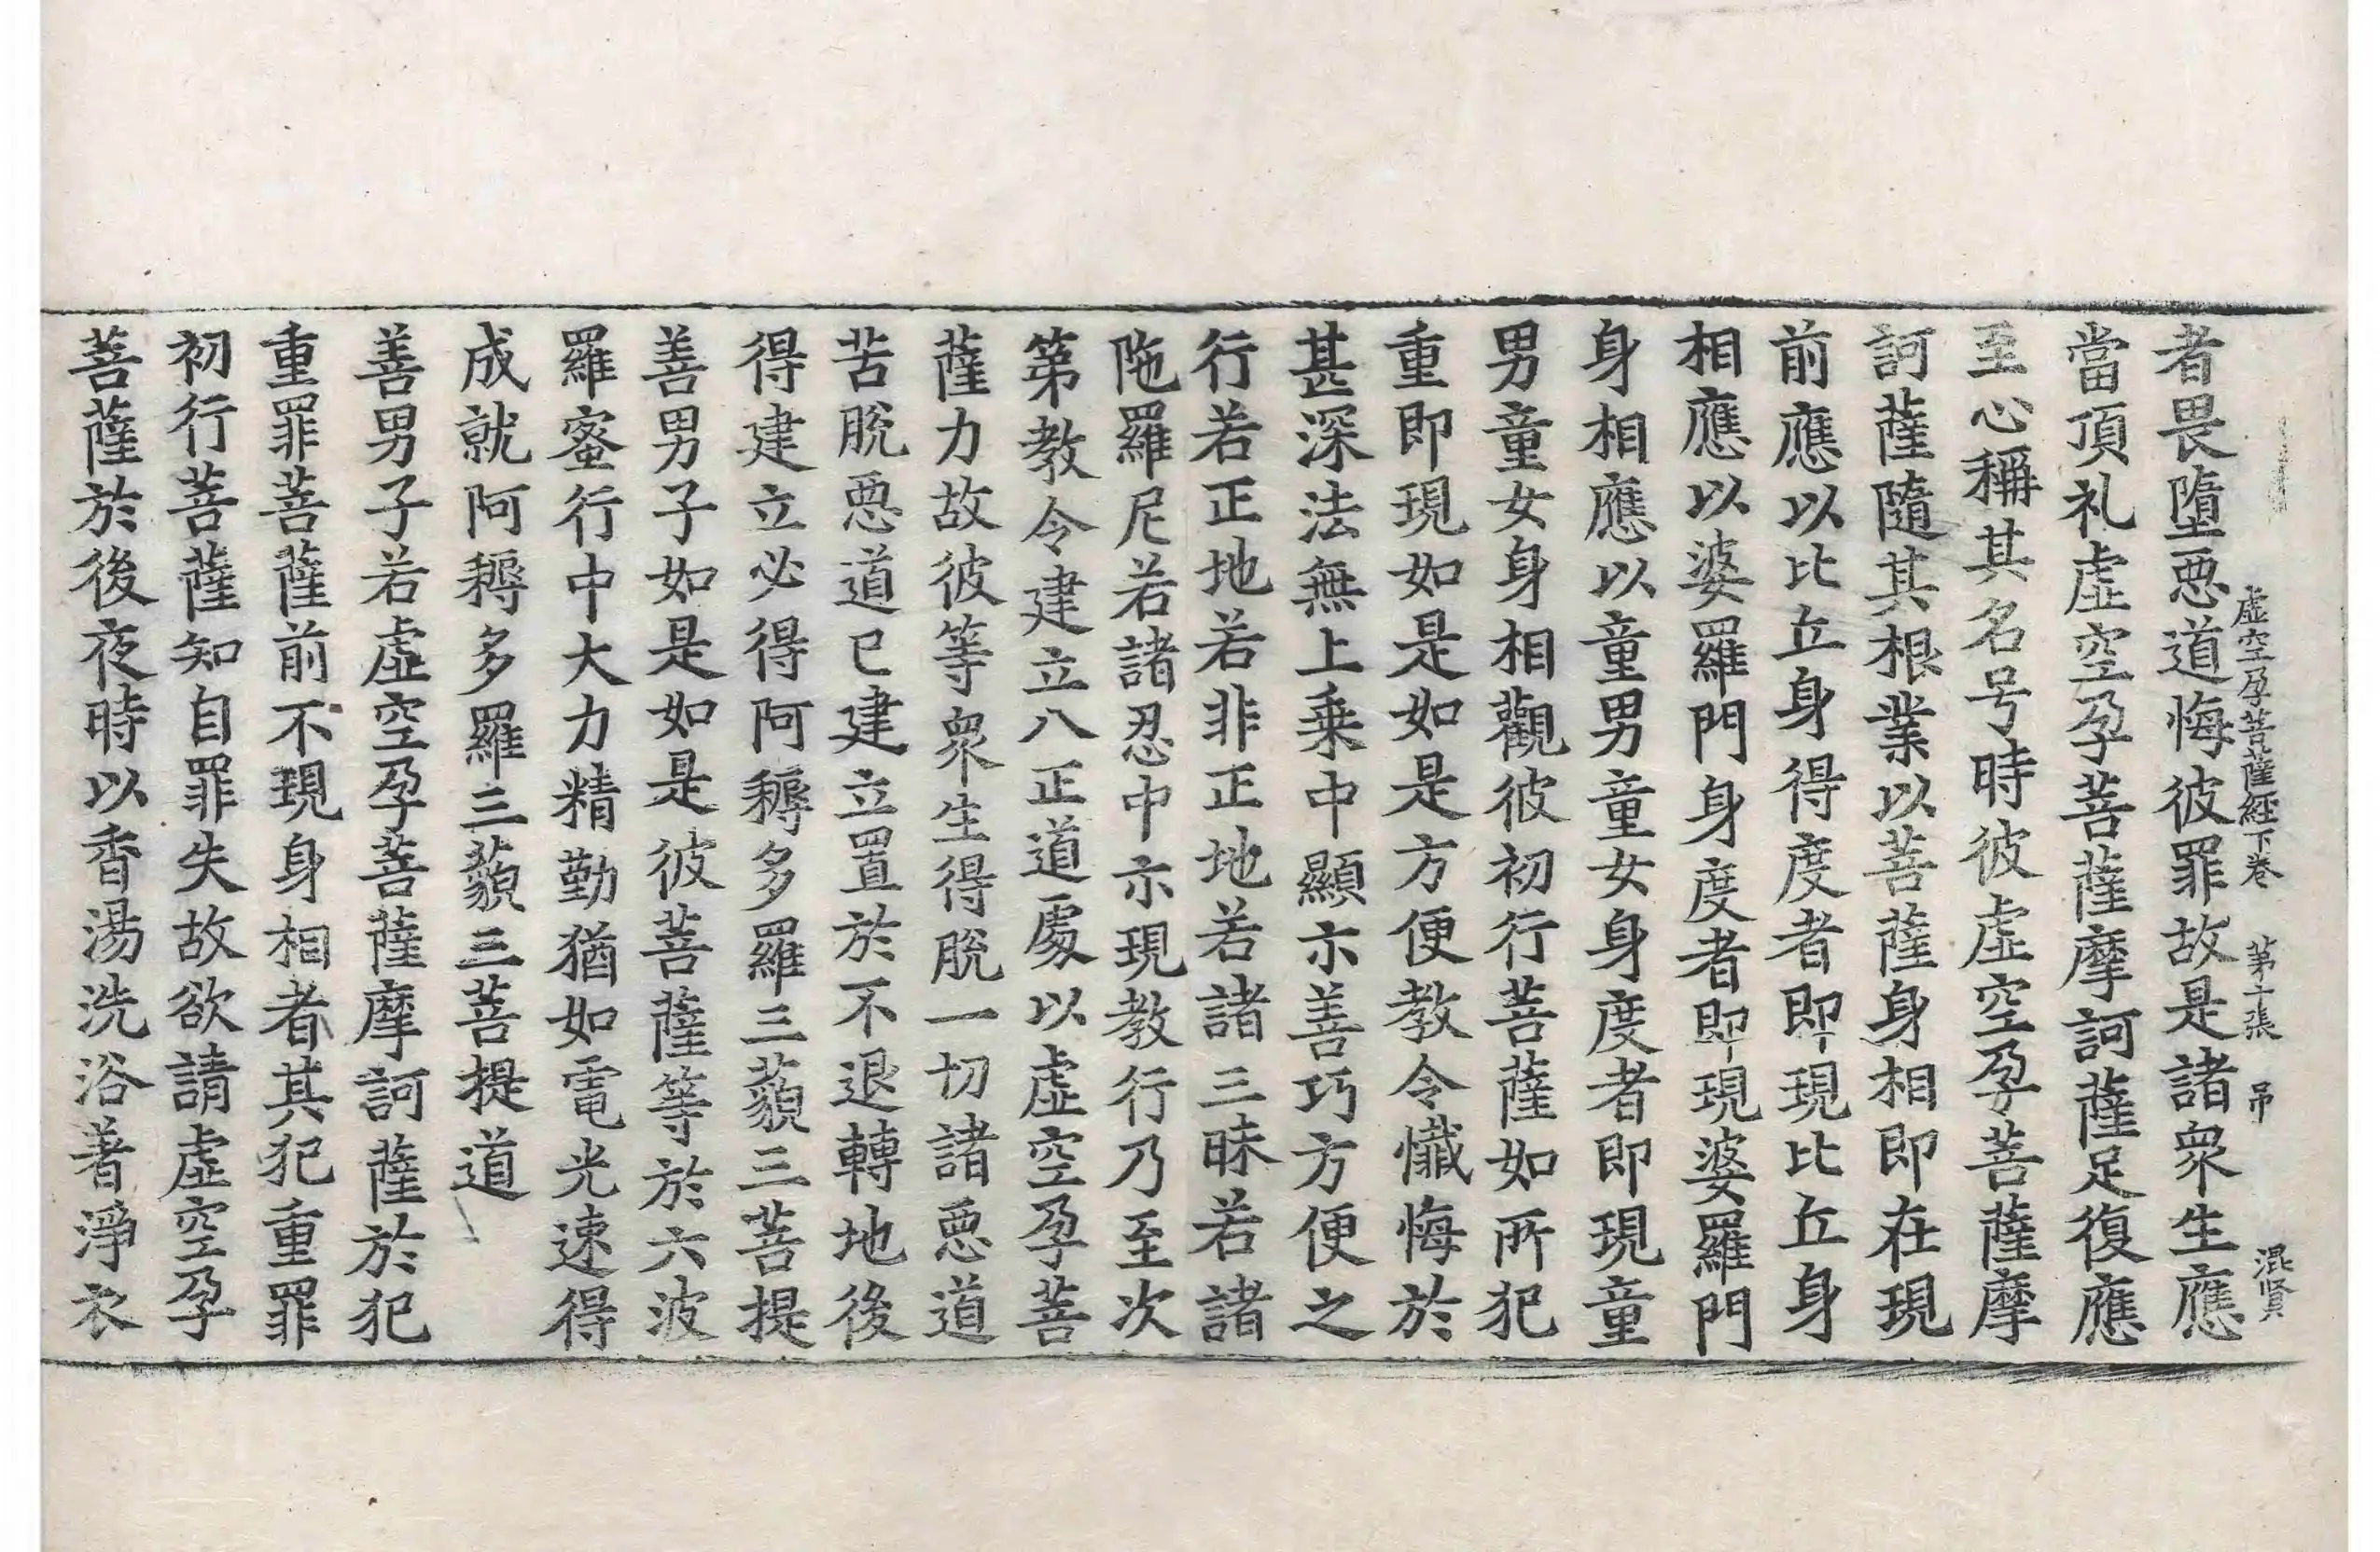 虛空孕菩薩經下卷 第十張 吊 混賢
者畏墮惡道悔彼罪故是諸衆生應
當頂礼虛空孕菩薩摩訶薩足復應
至心稱其名号時彼虛空孕菩薩摩
訶薩隨其根業以菩薩身相即在現
前應以比丘身得度者即現比丘身
相應以婆羅門身度者即現婆羅門
身相應以童男童女身度者即現童
男童女身相觀彼初行菩薩如所犯
重即現如是如是方便教令懺悔於
甚深法無上乗中顯示善巧方便之
行若正地若非正地若諸三昧若諸
陁羅尼若諸忍中示現教行乃至次
第教令建立八正道處以虛空孕菩
薩力故彼等衆生得脫一切諸惡道
苦脫惡道已建立置於不退轉地後
得建立必得阿耨多羅三藐三菩提
善男子如是如是彼菩薩等於六波
羅蜜行中大力精勤猶如電光速得
成就阿耨多羅三藐三菩提道
善男子若虛空孕菩薩摩訶薩於犯
重罪菩薩前不現身相者其犯重罪
初行菩薩知自罪失故欲請虛空孕
菩薩於後夜時以香湯洗浴著淨衣